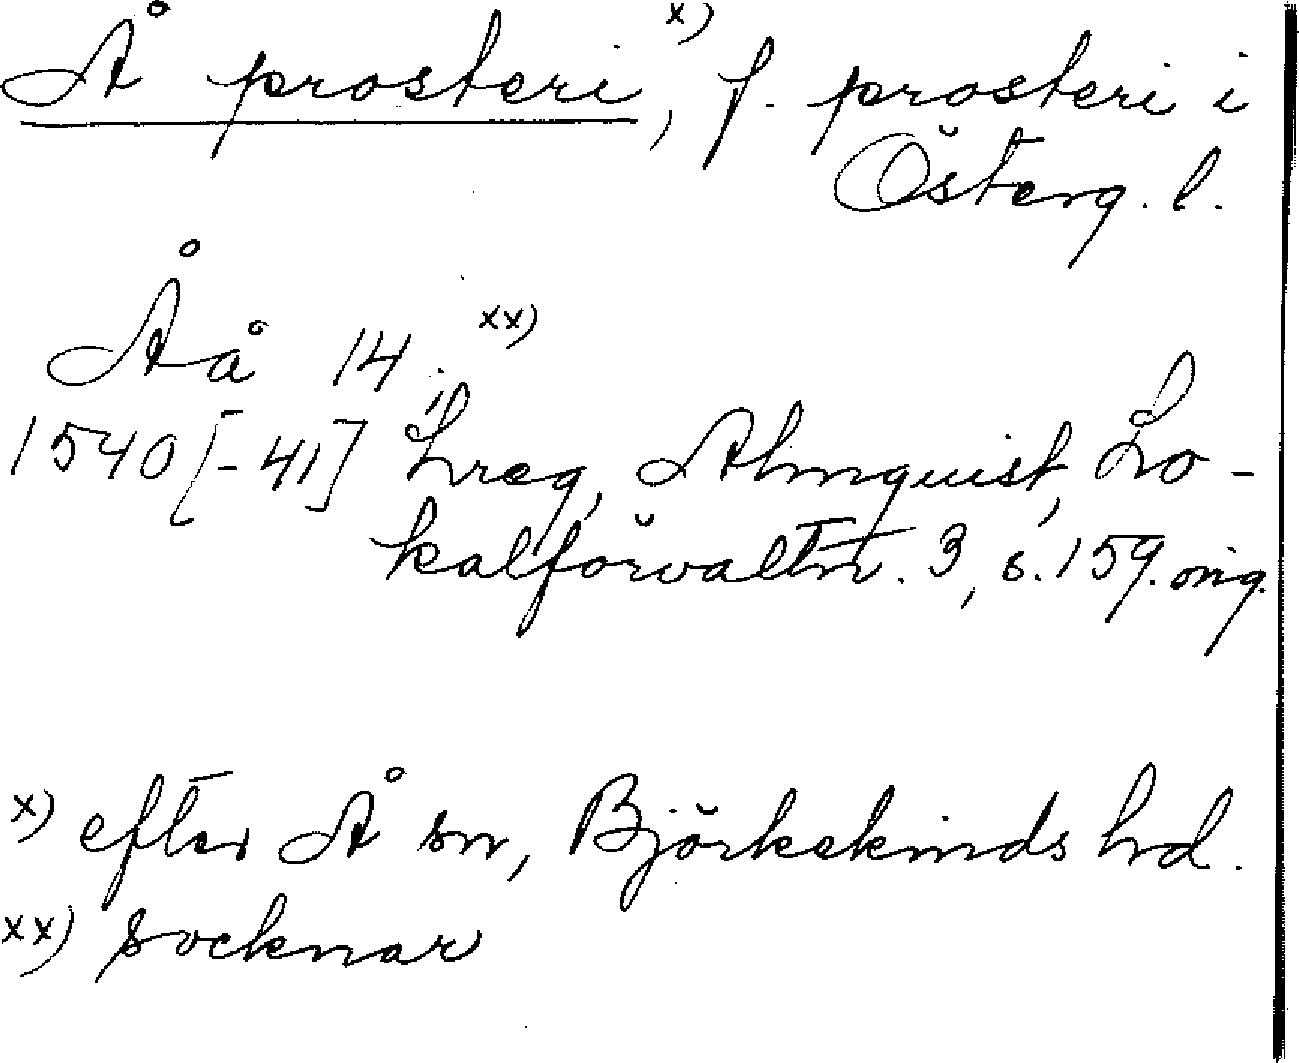 Å prosteri, x) f. prosteri i
Österg. l.
Åå 14. xx)
1540[-41] hreg, Almquist, Lo-
kalförvaltn. 3, s. 159. orig.
x) efter Å sn, Björkekinds hd.
xx) socknar